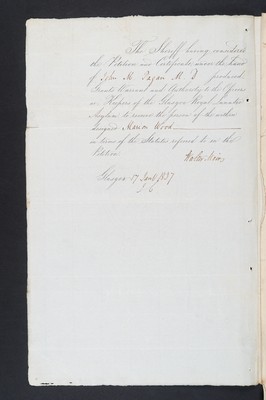 The Sheriff having considered
the Petition and Certificate under the hand
of John M. Pagan M D produced,
Grants Warrant and Authority to the Governor
or Keepers of the Glasgow Royal Lunatic
Asylum to receive the person of the within
designed Marion Wood
in terms of the Statutes referred to in the
Petition.
Glasgow 17 Jany 1837